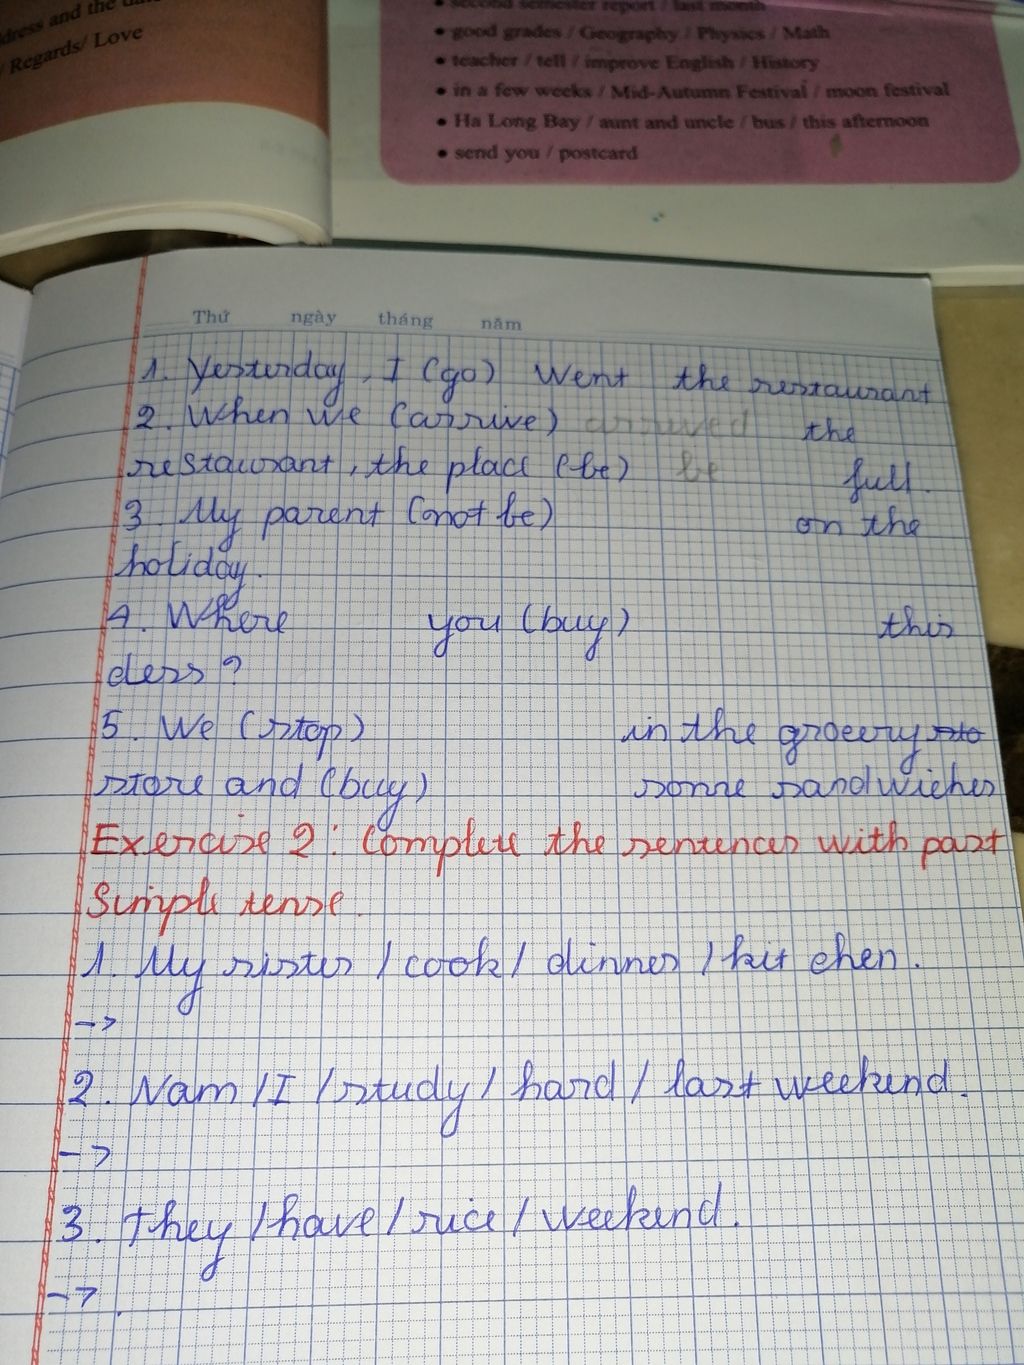 dress and the
/ Regards/ Love
• second semester report / last month
• good grades / Geography / Physics / Math
• teacher / tell / improve English / History
• in a few weeks / Mid-Autumn Festival / moon festival
• Ha Long Bay / aunt and uncle / bus / this afternoon
• send you / postcard
Thứ ngày tháng năm
1. Yesterday, I (go) went the restaurant
2. When we (arrive) arrived the
restaurant, the place (be) be full.
3. My parent (not be) on the
holiday.
4. Where you (buy) this
derss?
5. We (stop) in the grocery sto
store and (buy) some sandwiches
Exercise 2: Complete the sentences with past
Simple tense.
1. My sister / cook / dinner / kit chen.
->
2. Nam / I / study / hard / last weekend.
->
3. They / have / rice / weekend.
->.